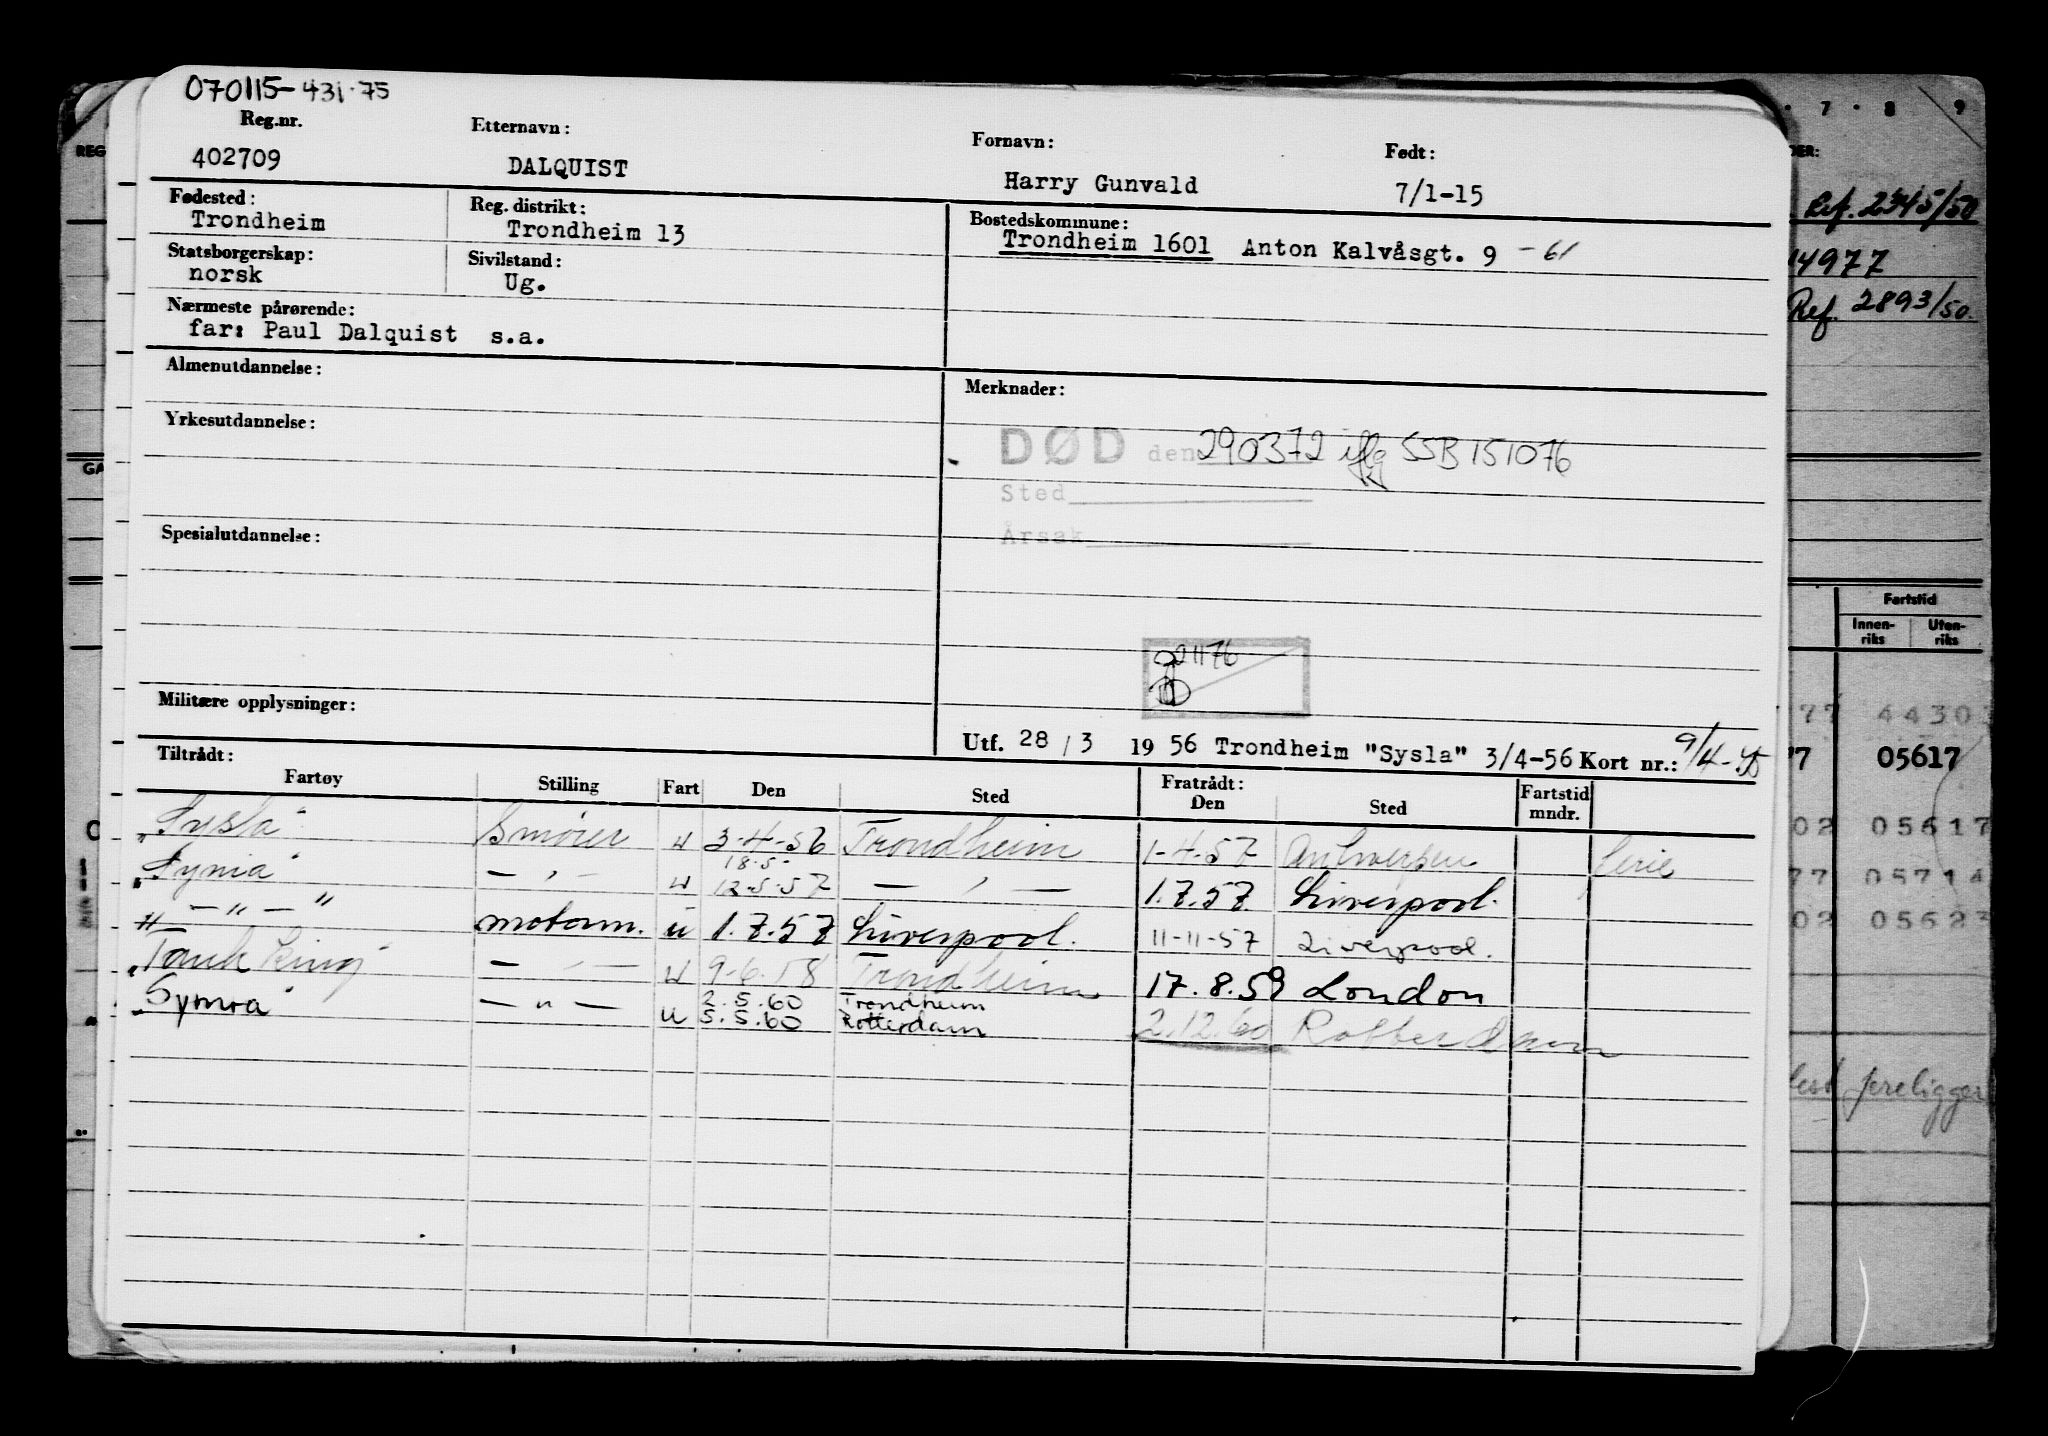 070115-431.75
Reg.nr. Etternavn: Fornavn: Født:
402709 DALQUIST Harry Gunvald 7/1-15
Fødested: Reg. distrikt: Bostedskommune:
Trondheim Trondheim 13 Trondheim 1601 Anton Kalvåsgt. 9 -61
Statsborgerskap: Sivilstand:
norsk Ug.
Nærmeste pårørende:
far: Paul Dalquist s.a.
Almenutdannelse: Merknader:
Yrkesutdannelse:
DØD den 290372 iflg SSB 151076
Sted
Årsak
Spesialutdannelse:
21176
Militære opplysninger:
Utf. 28/3 1956 Trondheim "Sysla" 3/4-56 Kort nr.: 9/4-
Tiltrådt: Fratrådt:
Fartøy Stilling Fart Den Sted Den Sted Fartstid mndr.
"Sysla" Smører u 3-4-56 Trondheim 1-4-57 Antwerpen ferie
18.5-
"Synia" — " — u 12.5.57 — " — 1.7.57 Liverpool.
" — " — " motorm. u 1.7.57 Liverpool. 11-11-57 Liverpool.
"Tank King" — " — u 9-6.58 Trondheim 17.8.59 London
2.5.60 Trondheim
"Symra" — " — u 5.5.60 Rotterdam 2.12.60 Rotterdam
REG
GA
7 · 8 9
Ref. 2345/50
14977
Ref. 2893/50.
Fartstid
Innen-
riks
Uten-
riks
77 44303
77 05617
02 05617
77 05714
02 05623
foreligger